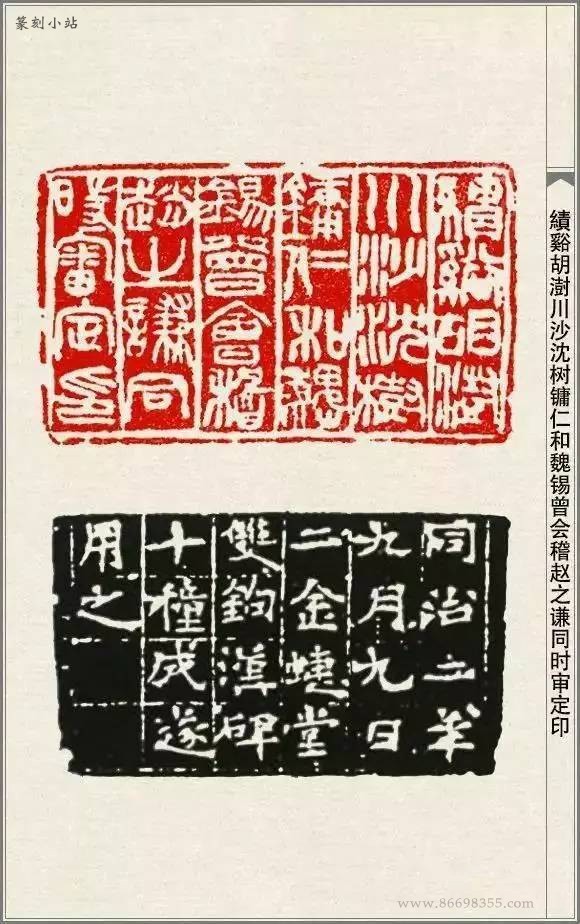 篆刻小站
績谿胡澍
川沙沈樹
鏞仁和魏
錫曾會稽
趙之謙同
時審定印
績谿胡澍川沙沈树镛仁和魏锡曾会稽赵之谦同时审定印
同治二年
九月九日
二金蜨堂
雙鉤漢碑
十種成遂
用之
www.86698355.com